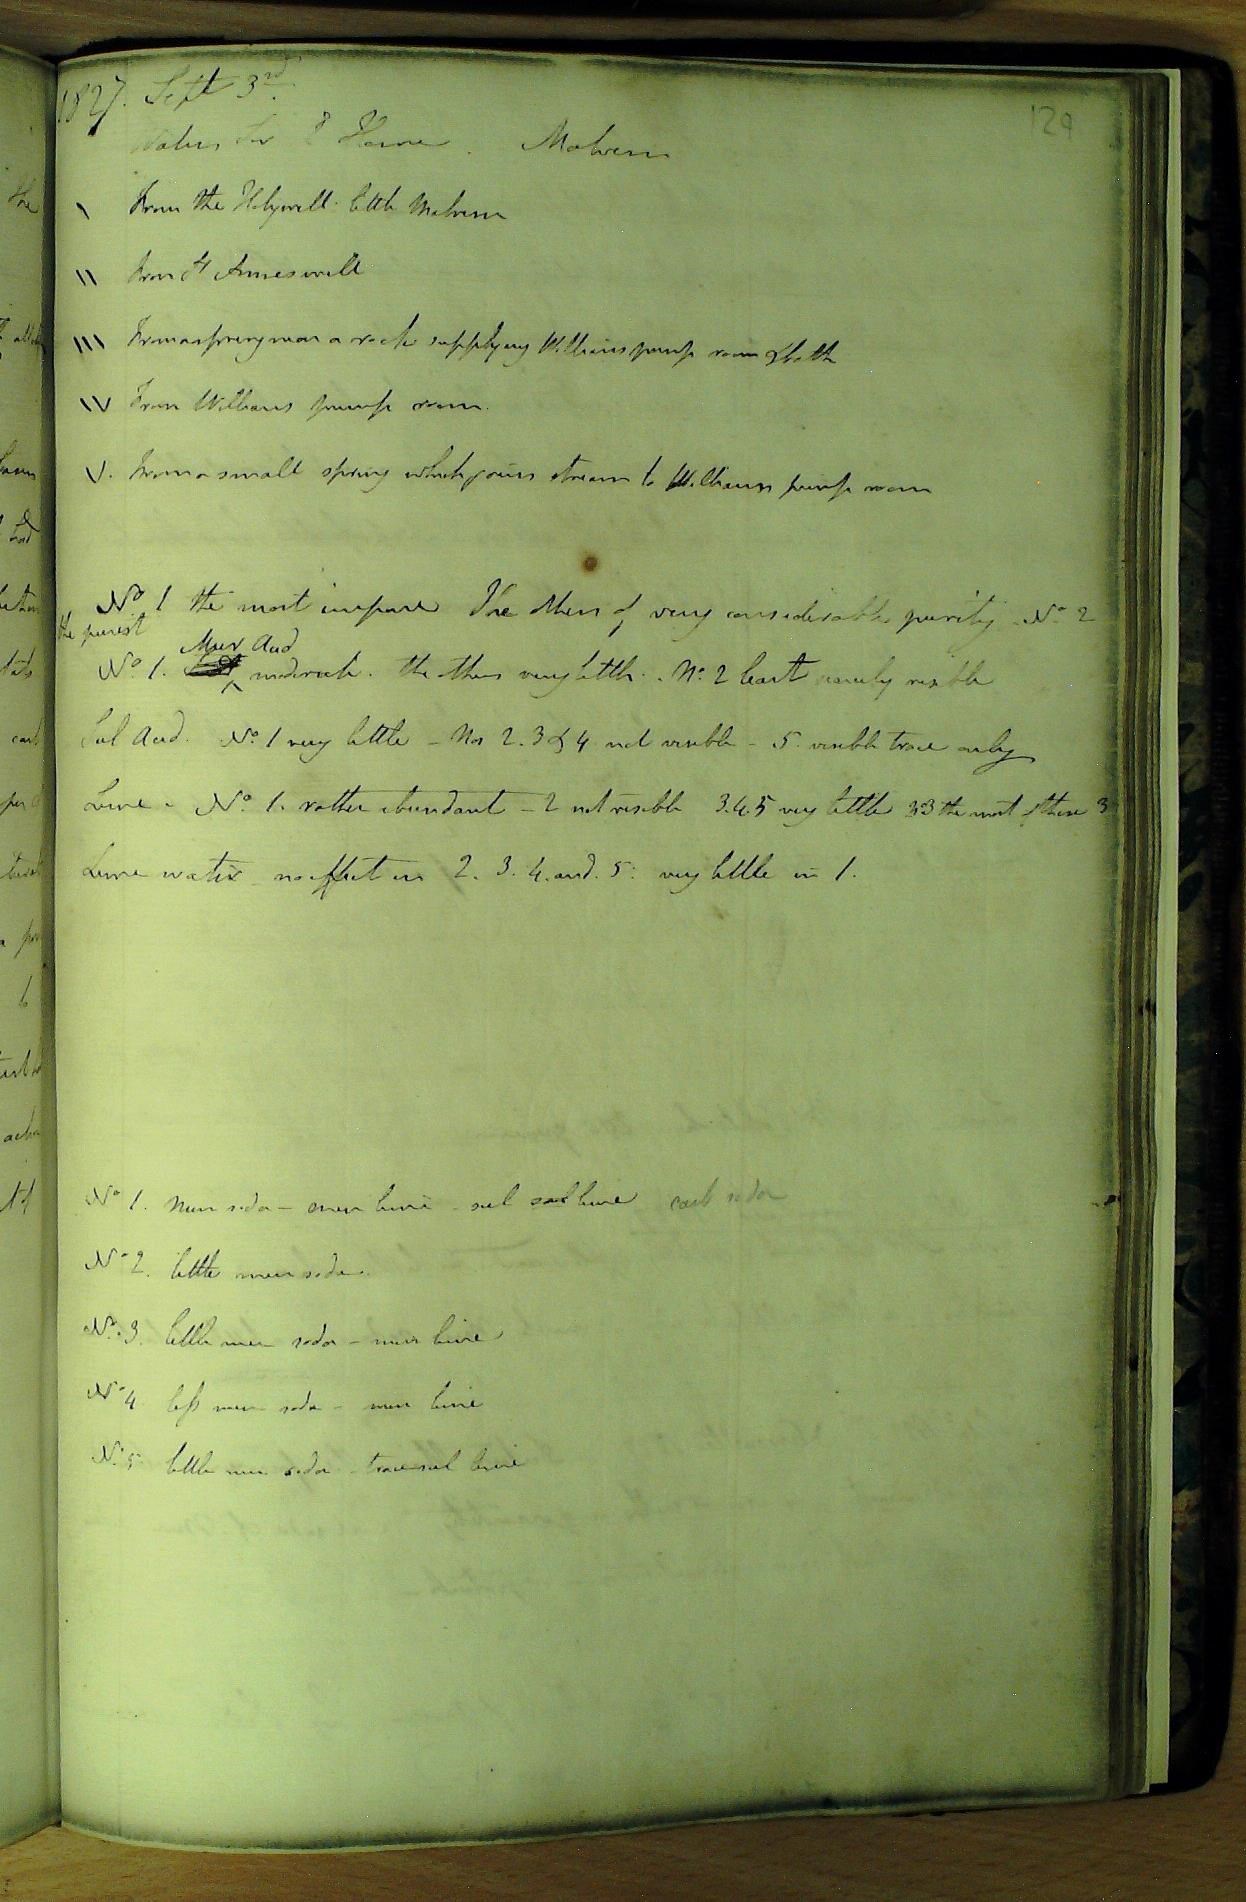 129
1827. Sept 3rd
Waters for E Home. Malvern
\ From the Holywell little Malvern
\\ From St Anneswell
\\\ From a spring near a rock supplying Williams pump room & bath
\V From Williams pump room.
V. From a small spring which joins stream to Williams pump room
No 1 the most impure The others of very considerable purity. No 2
the purist
Mur Acid
No 1. moderate. the others very little. No 2 least scarcely visible
Sul Acid. No 1 very little - Nos 2. 3 & 4 not visible - 5. visible trace only
Lime - No 1. rather abundant - 2 not visible 3.4.5 very little 3 the most of these 3
Lime water no effect in 2. 3. 4. and. 5. very little in 1.
No 1. Mur soda - mur lime - sul lime carb soda
No 2. little mur soda.
No. 3. little mur soda - mur lime
No 4 less mur soda - mur lime
No. 5. little mur soda - trace sul lime